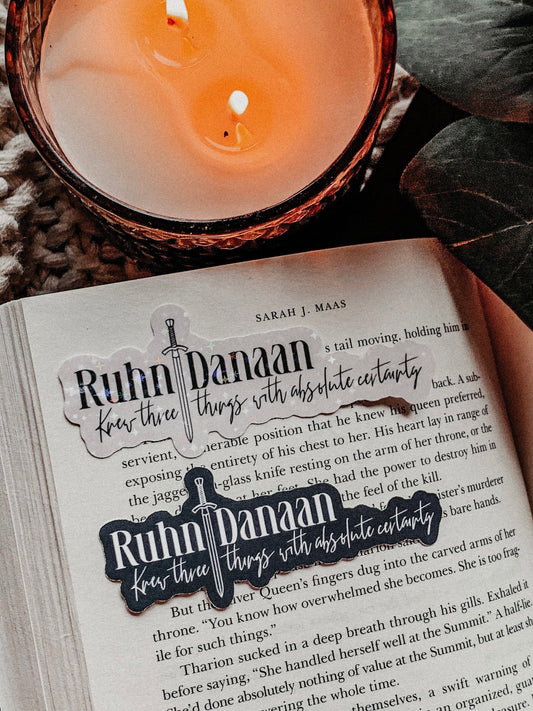 SARAH J. MAAS
s tail moving, holding him in
Ruhn Danaan
Knew three things with absolute certainty
back. A sub-
servient, nerable position that he knew his queen preferred,
exposing the entirety of his chest to her. His heart lay in range of
the jagged -glass knife resting on the arm of her throne, or the
at her feet. She had the power to destroy him in
the feel of the kill.
ister's murderer
Ruhn Danaan
Knew three things with absolute certainty
s bare hands.
said
But the River Queen's fingers dug into the carved arms of her
throne. "You know how overwhelmed she becomes. She is too frag-
ile for such things."
Tharion sucked in a deep breath through his gills. Exhaled it
before saying, "She handled herself well at the Summit." A half-lie.
She'd done absolutely nothing of value at the Summit, but at least she
wering the whole time.
themselves, a swift warning of
an organized, gua